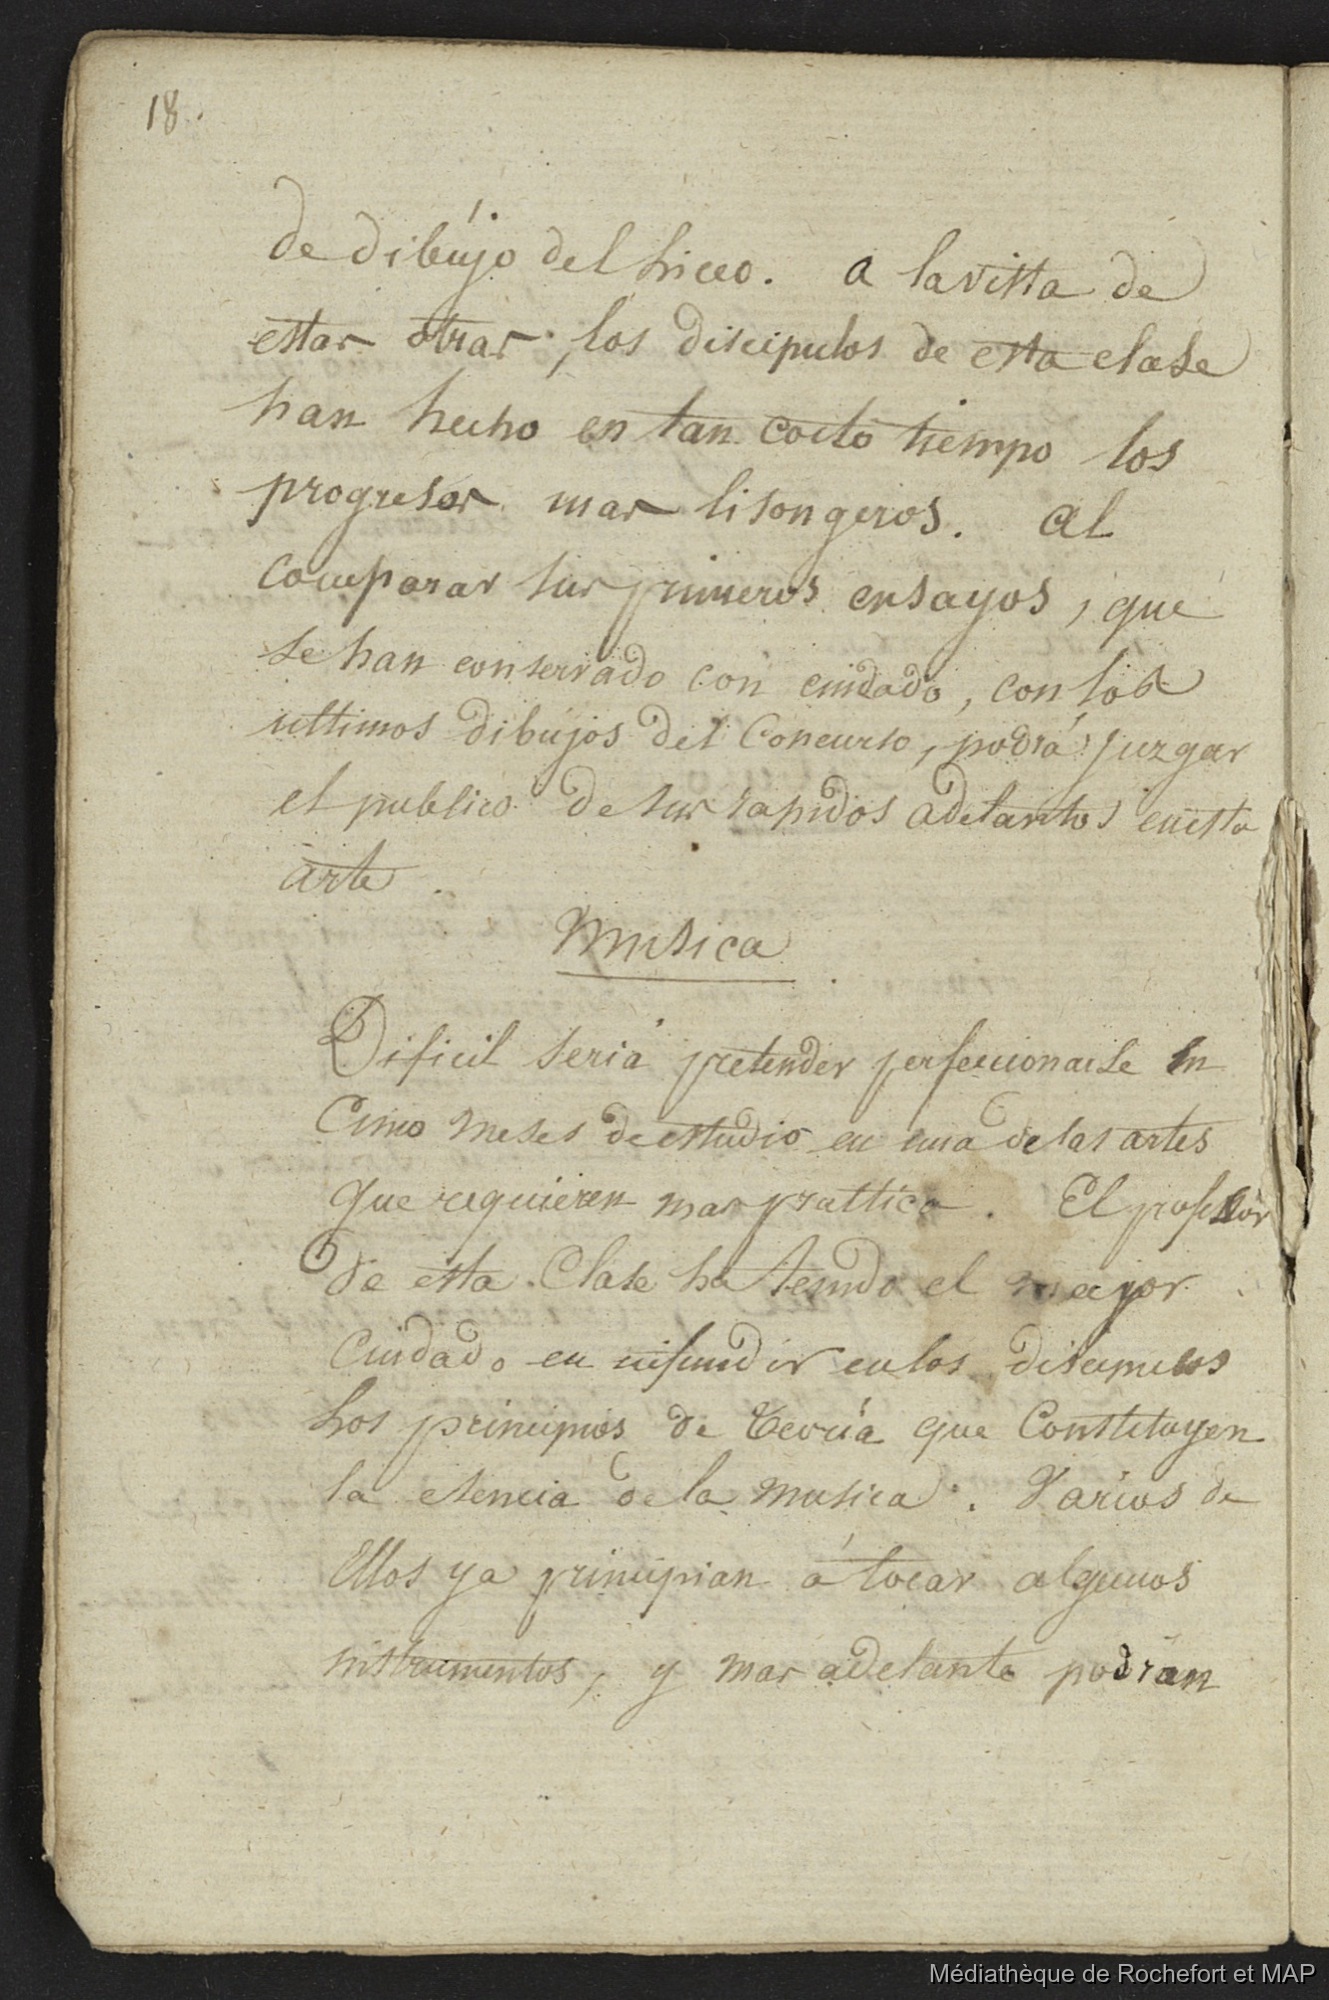 18.
de dibújo del Liceo. a la vista de
estas otras, los discipulos de esta clase
han hecho en tan corto tiempo los
progresos mas lisongeros. Al
comparar sus primeros ensayos, que
se han conservado con cuidado, con los
ultimos dibújos del Concurso, podrá juzgar
el publico de sus rapidos adelantos en esta
arte.
Musica
Dificil seria pretender perfeccionarse en
Cinco meses de estudio en una de las artes
que requieren mas prattica. El profesor
de esta Clase ha tenido el mayor
Cuidado en infundir en los discipulos
Los principios de teoria que Constituyen
la esencia de la musica. Varios de
Ellos ya principian á tocar algunos
instrumentos, y mas adelante podran
Médiathèque de Rochefort et MAP